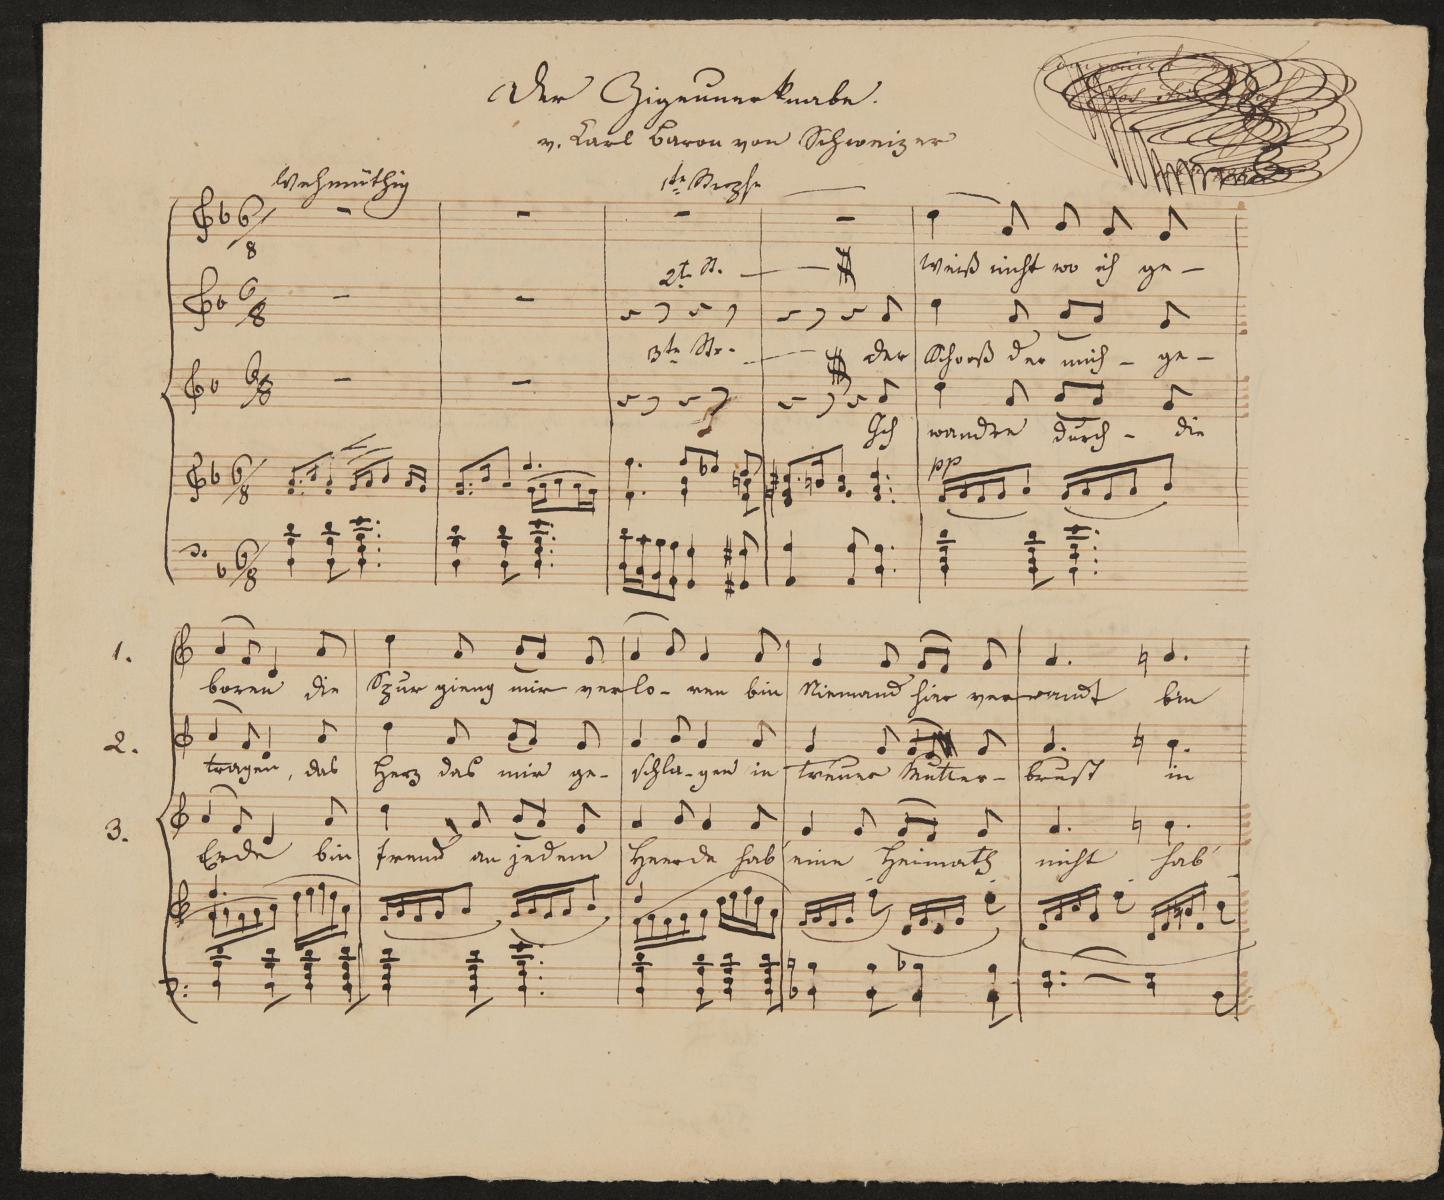 Der Zigeunerknabe.
v. Karl Baron von Schweizer
Wehmüthig
1te Strophe
Weiß nicht wo ich ge-
2te St.
der Schooß der mich - ge-
3te Str.
Ich wandre durch - die
pp
1. boren die Spur gieng mir verlo-ren bin Niemand hier verwandt bin
2. tragen, das Herz das mir ge- schla-gen in treuer Mutter- brust in
3. Erde bin fremd an jedem Heerde hab' eine Heimath nicht hab'